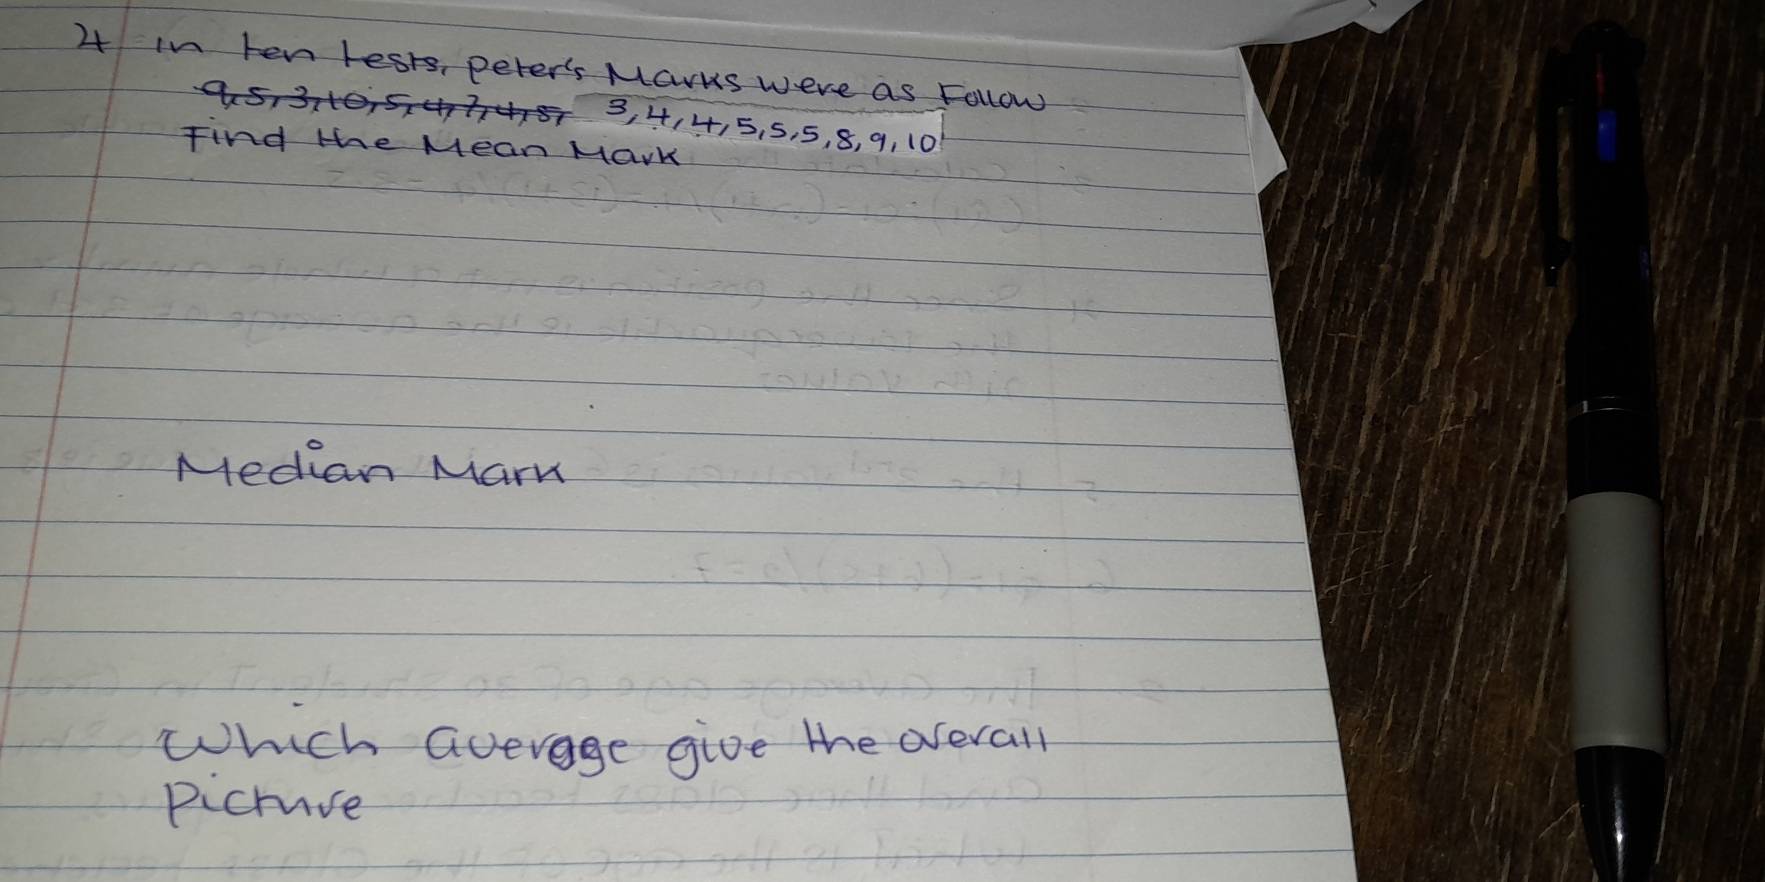 4 in ten tests, peter's Marks were as Follow
9,5,3,10,5,4,7,4,5, 3,4,4,5,5,5,8,9,10
Find the Mean Mark
Median Mark
Which average give the overall
Picture